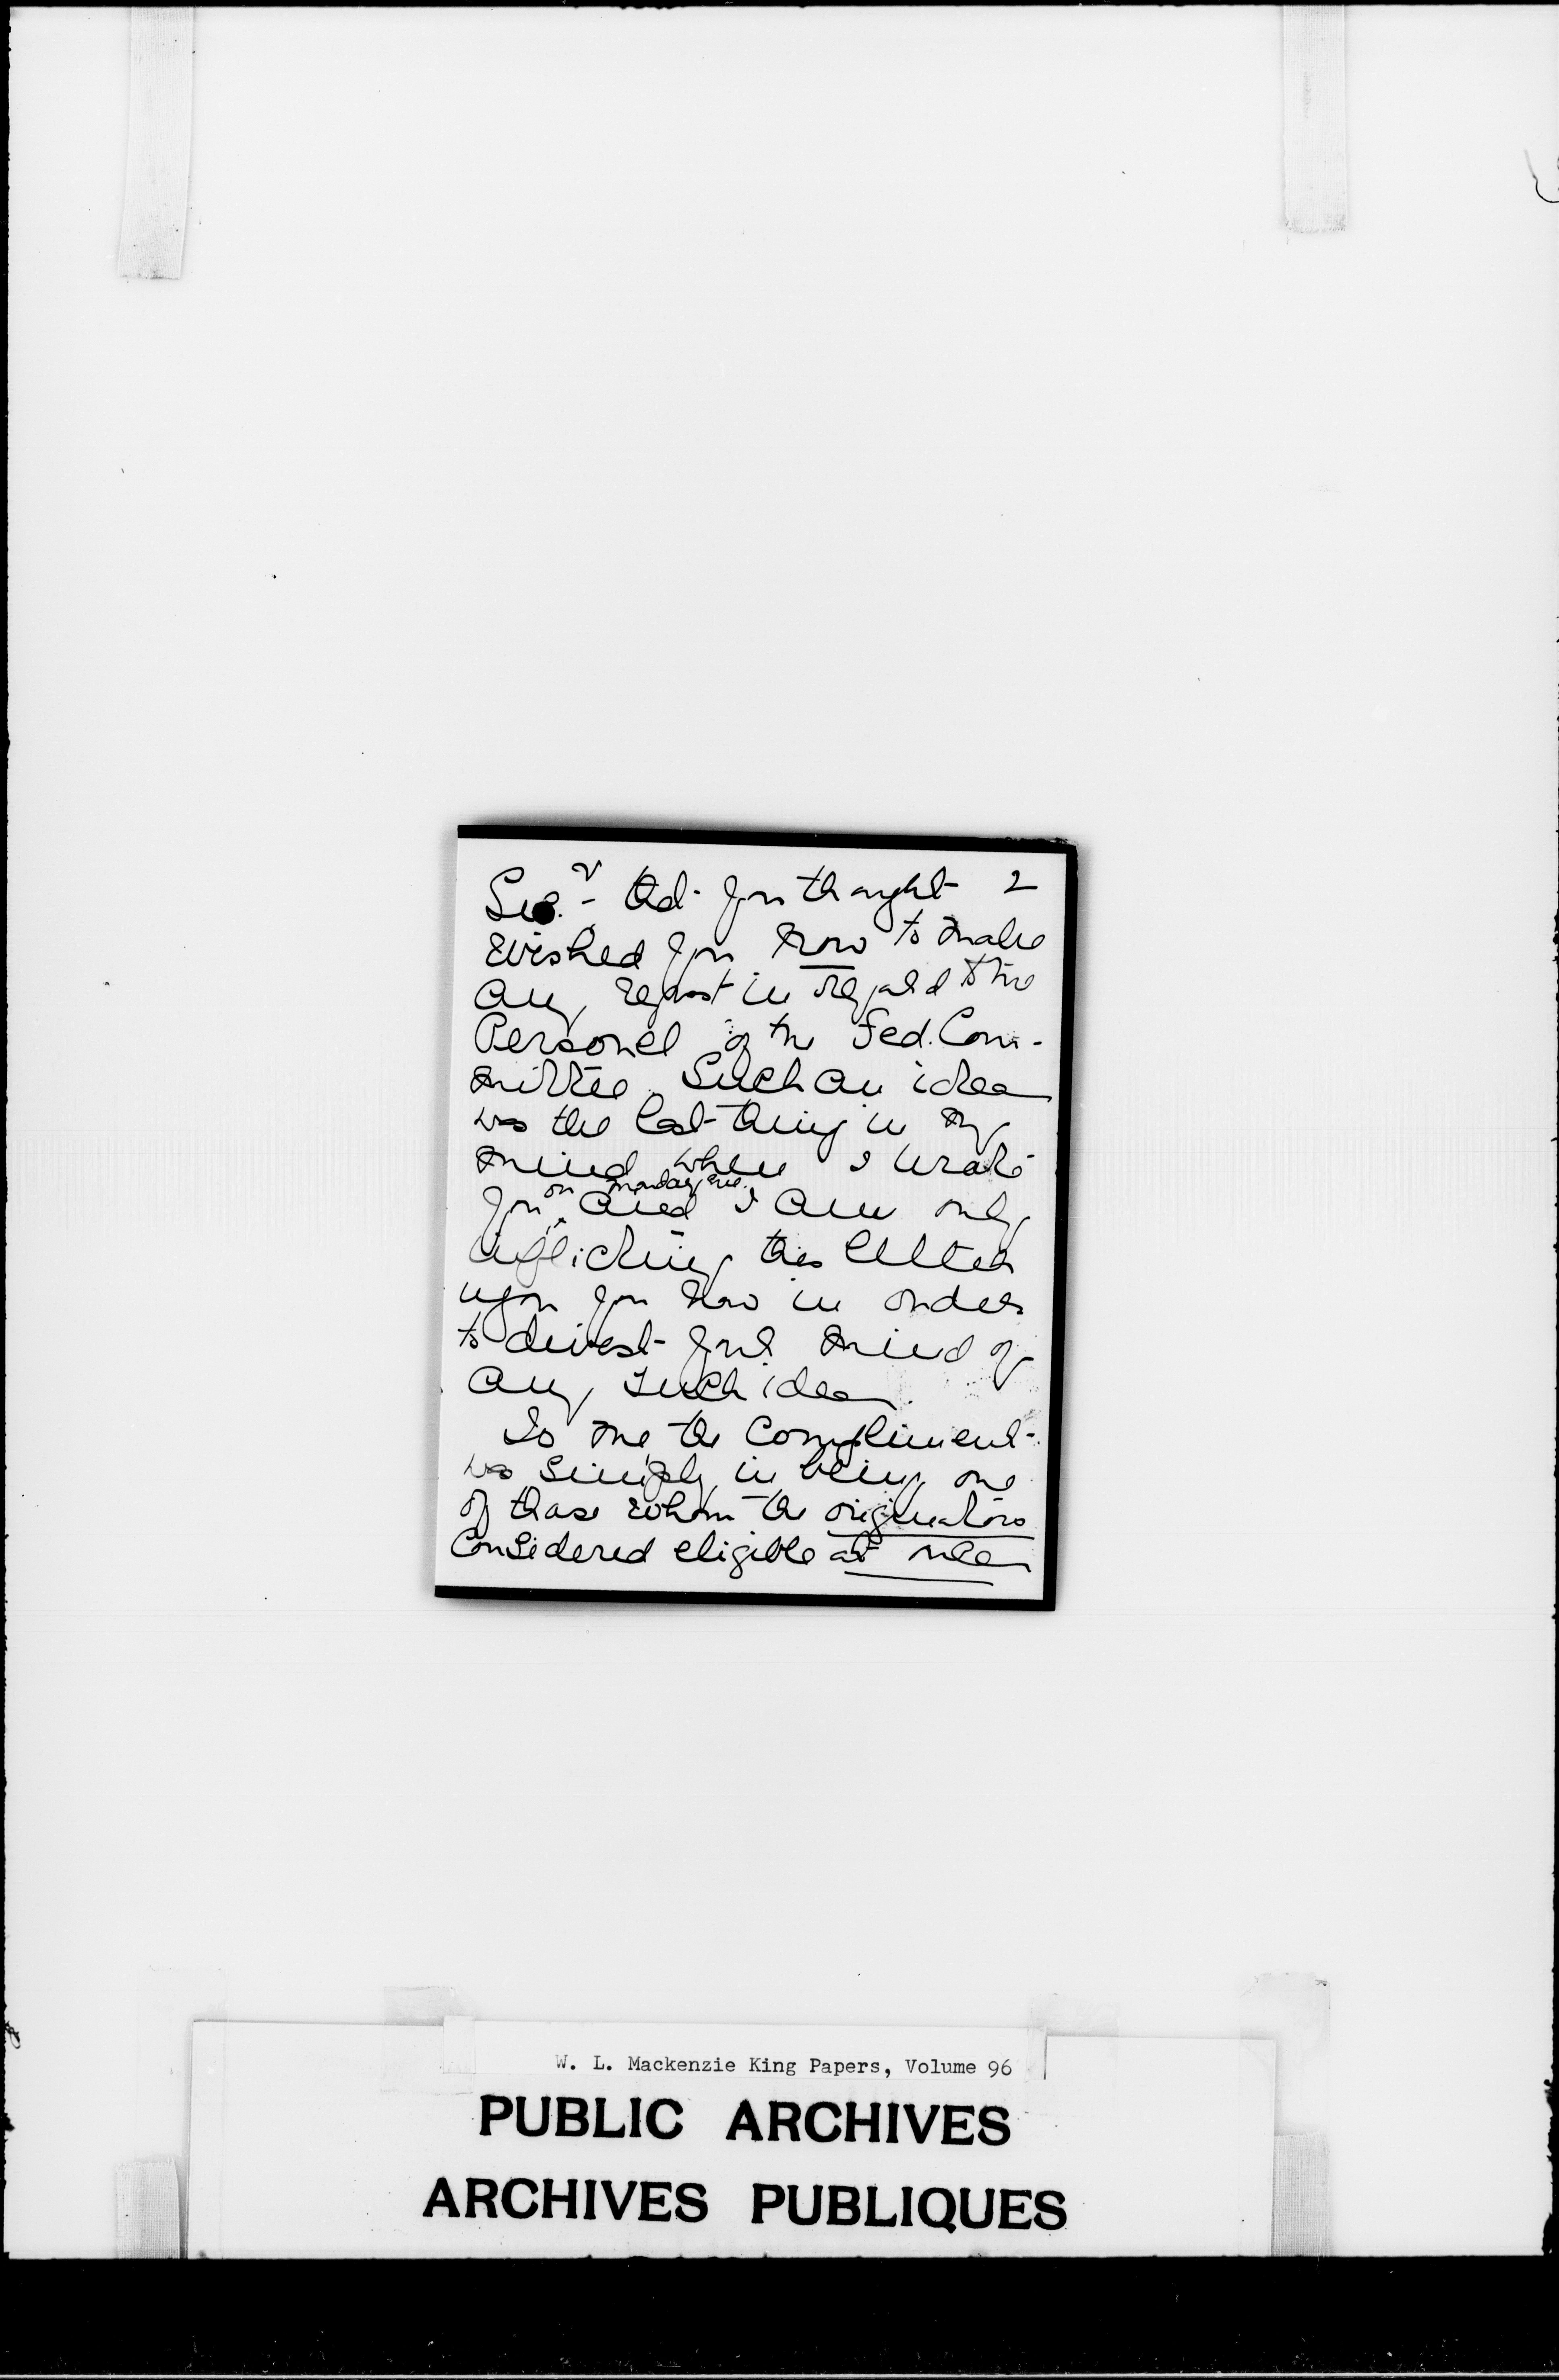 Sec.y - that you thought I
wished you now to make
any report in regard to the
Personel of the Fed. Com-
mittee. Such an idea
was the last thing in my
mind when I wrote
you on Monday eve. and I am only
inflicting this letter
upon you now in order
to divest your mind of
any such idea.
To me the compliment
was simply in being one
of those whom the originators
considered eligible at
W. L. Mackenzie King Papers, Volume 96
PUBLIC ARCHIVES
ARCHIVES PUBLIQUES